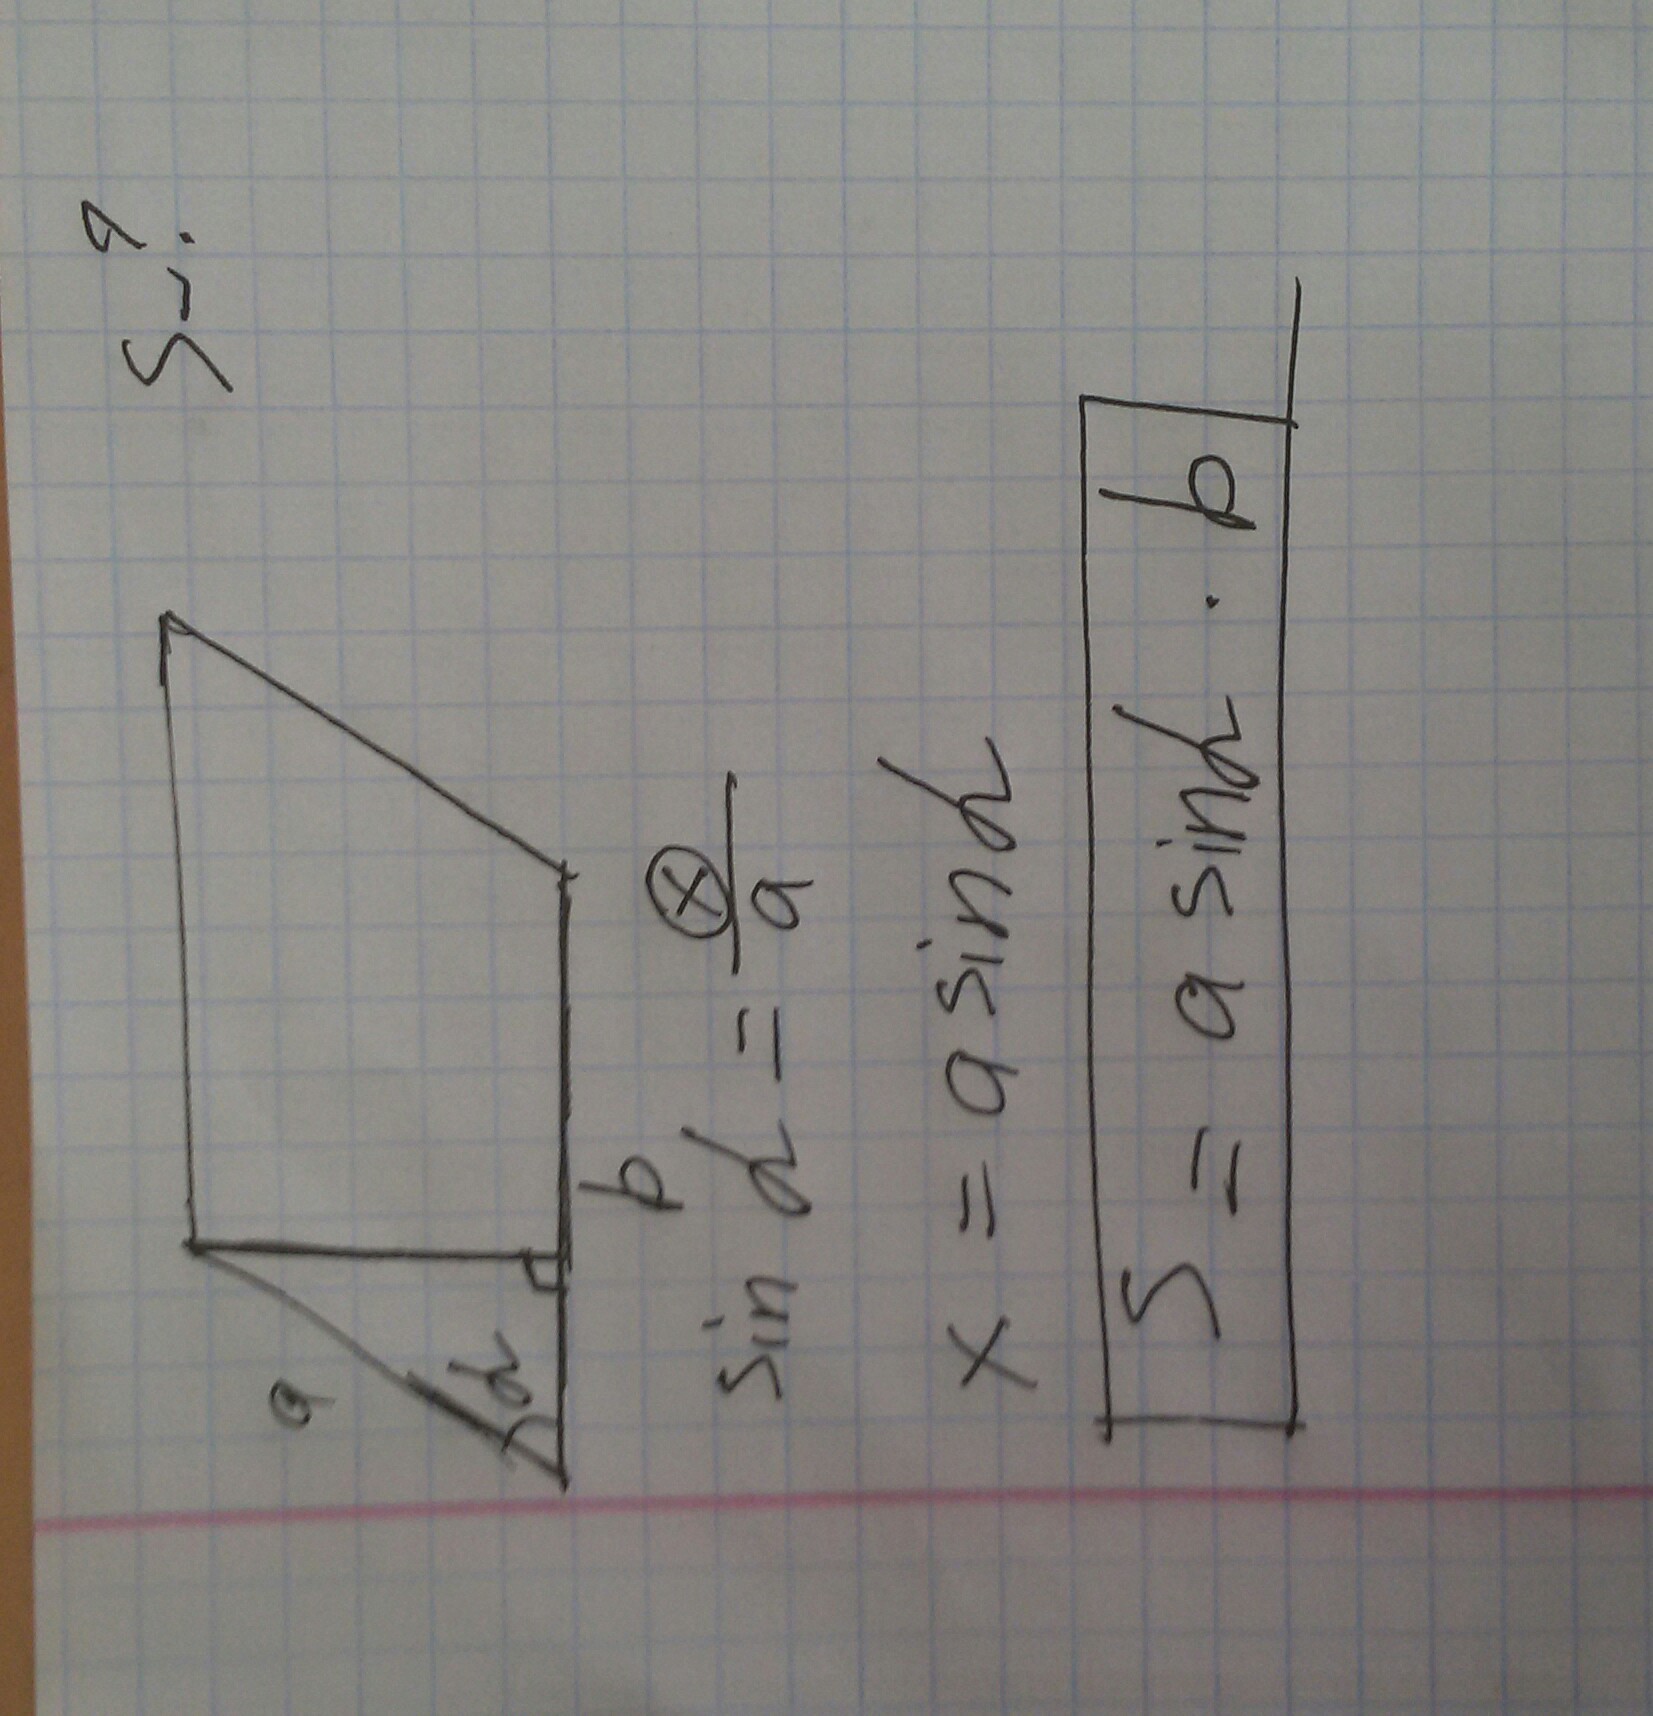 S-?
a
α
b
sin α = x/a
x = a sinα
S = a sinα · b